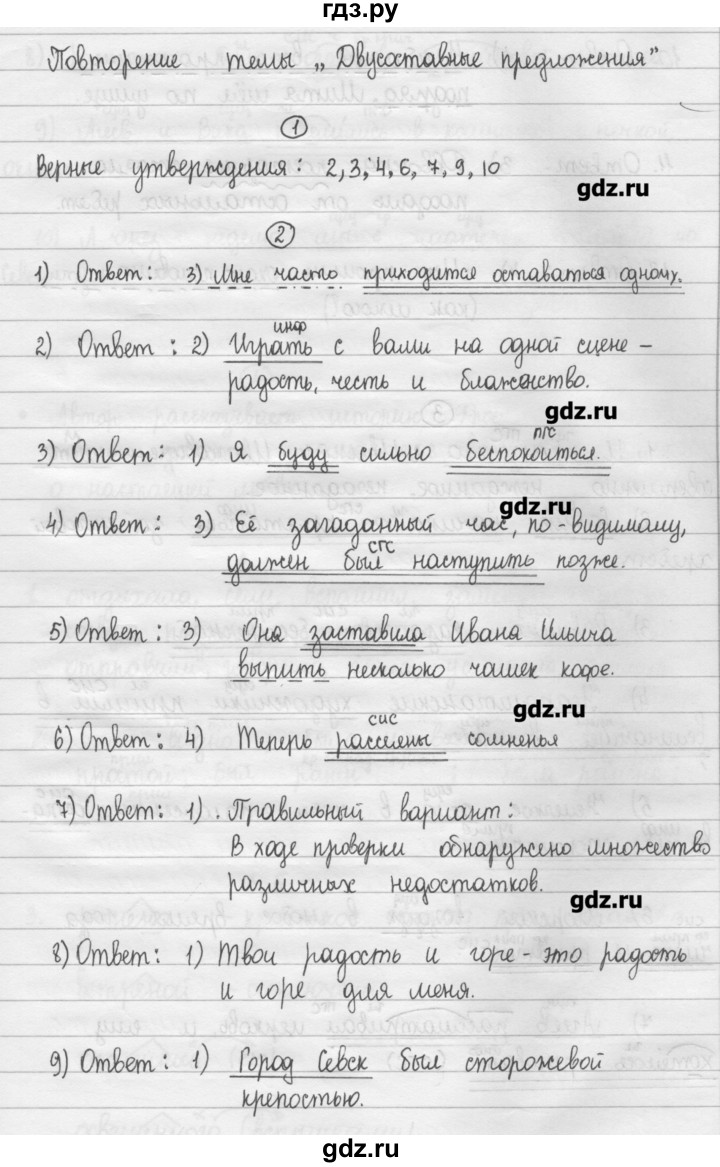 гдз.ру
Повторение темы „Двусоставные предложения"
1
Верные утверждения: 2, 3, 4, 6, 7, 9, 10
gdz.ru
2
1) Ответ: 3) Мне часто приходится оставаться одному.
инф
2) Ответ: 2) Играть с вами на одной сцене –
радость, честь и блаженство.
gdz.ru
пгс
3) Ответ: 1) Я буду сильно беспокоиться.
gdz.ru
4) Ответ: 3) Её загаданный час, по видимому,
сгс
должен был наступить позже.
5) Ответ: 3) Она заставила Ивана Ильича
выпить несколько чашек кофе.
gdz.ru
сис
6) Ответ: 4) Теперь рассеяны сомненья
7) Ответ: 1). Правильный вариант:
В ходе проверки обнаружено множество
различных недостатков.
gdz.ru
8) Ответ: 1) Твои радость и горе - это радость
и горе для меня.
9) Ответ: 1) Город Севск был сторожевой
крепостью.
gdz.ru
gdz.ru